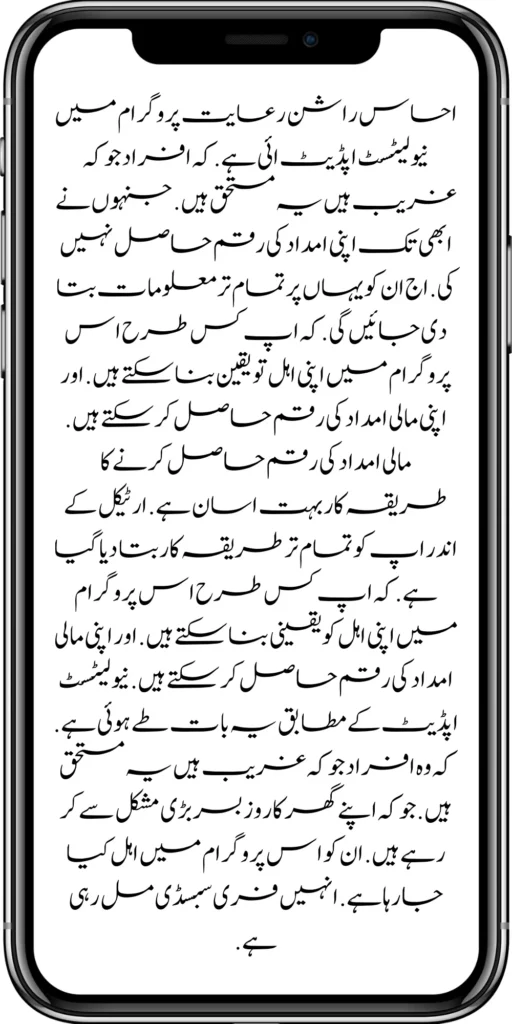 احساس راشن رعایت پروگرام میں
نیو لیٹسٹ اپڈیٹ ائی ہے. کہ افراد جو کہ
غریب ہیں یہ مستحق ہیں. جنہوں نے
ابھی تک اپنی امداد کی رقم حاصل نہیں
کی. اج ان کو یہاں پر تمام تر معلومات بتا
دی جائیں گی. کہ اپ کس طرح اس
پروگرام میں اپنی اہل تو یقین بنا سکتے ہیں. اور
اپنی مالی امداد کی رقم حاصل کر سکتے ہیں.
مالی امداد کی رقم حاصل کرنے کا
طریقہ کار بہت اسان ہے. ارٹیکل کے
اندر اپ کو تمام تر طریقہ کار بتا دیا گیا
ہے. کہ اپ کس طرح اس پروگرام
میں اپنی اہل کو یقینی بنا سکتے ہیں. اور اپنی مالی
امداد کی رقم حاصل کر سکتے ہیں. نیو لیٹسٹ
اپڈیٹ کے مطابق یہ بات طے ہوئی ہے.
کہ وہ افراد جو کہ غریب ہیں یہ مستحق
ہیں. جو کہ اپنے گھر کا روز بسر بڑی مشکل سے کر
رہے ہیں. ان کو اس پروگرام میں اہل کیا
جا رہا ہے. انہیں فری سبسڈی مل رہی
ہے.